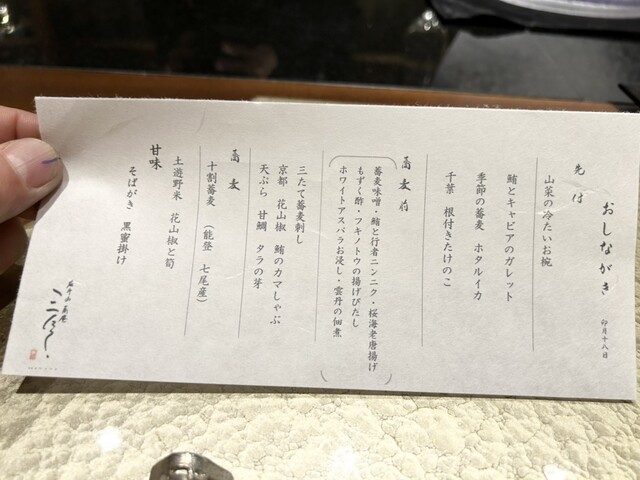 おしながき
卯月十八日
先付
山菜の冷たいお椀
鮪とキャビアのガレット
季節の蕎麦 ホタルイカ
千葉 根付きたけのこ
蕎麦前
蕎麦味噌・鮪と行者ニンニク・桜海老唐揚げ
もずく酢・フキノトウの揚げびたし
ホワイトアスパラお浸し・雲丹の佃煮
三たて蕎麦刺し
京都 花山椒 鮪のカマしゃぶ
天ぷら 甘鯛 タラの芽
蕎麦
十割蕎麦 (能登 七尾産)
土遊野米 花山椒と筍
甘味
そばがき 黒蜜掛け